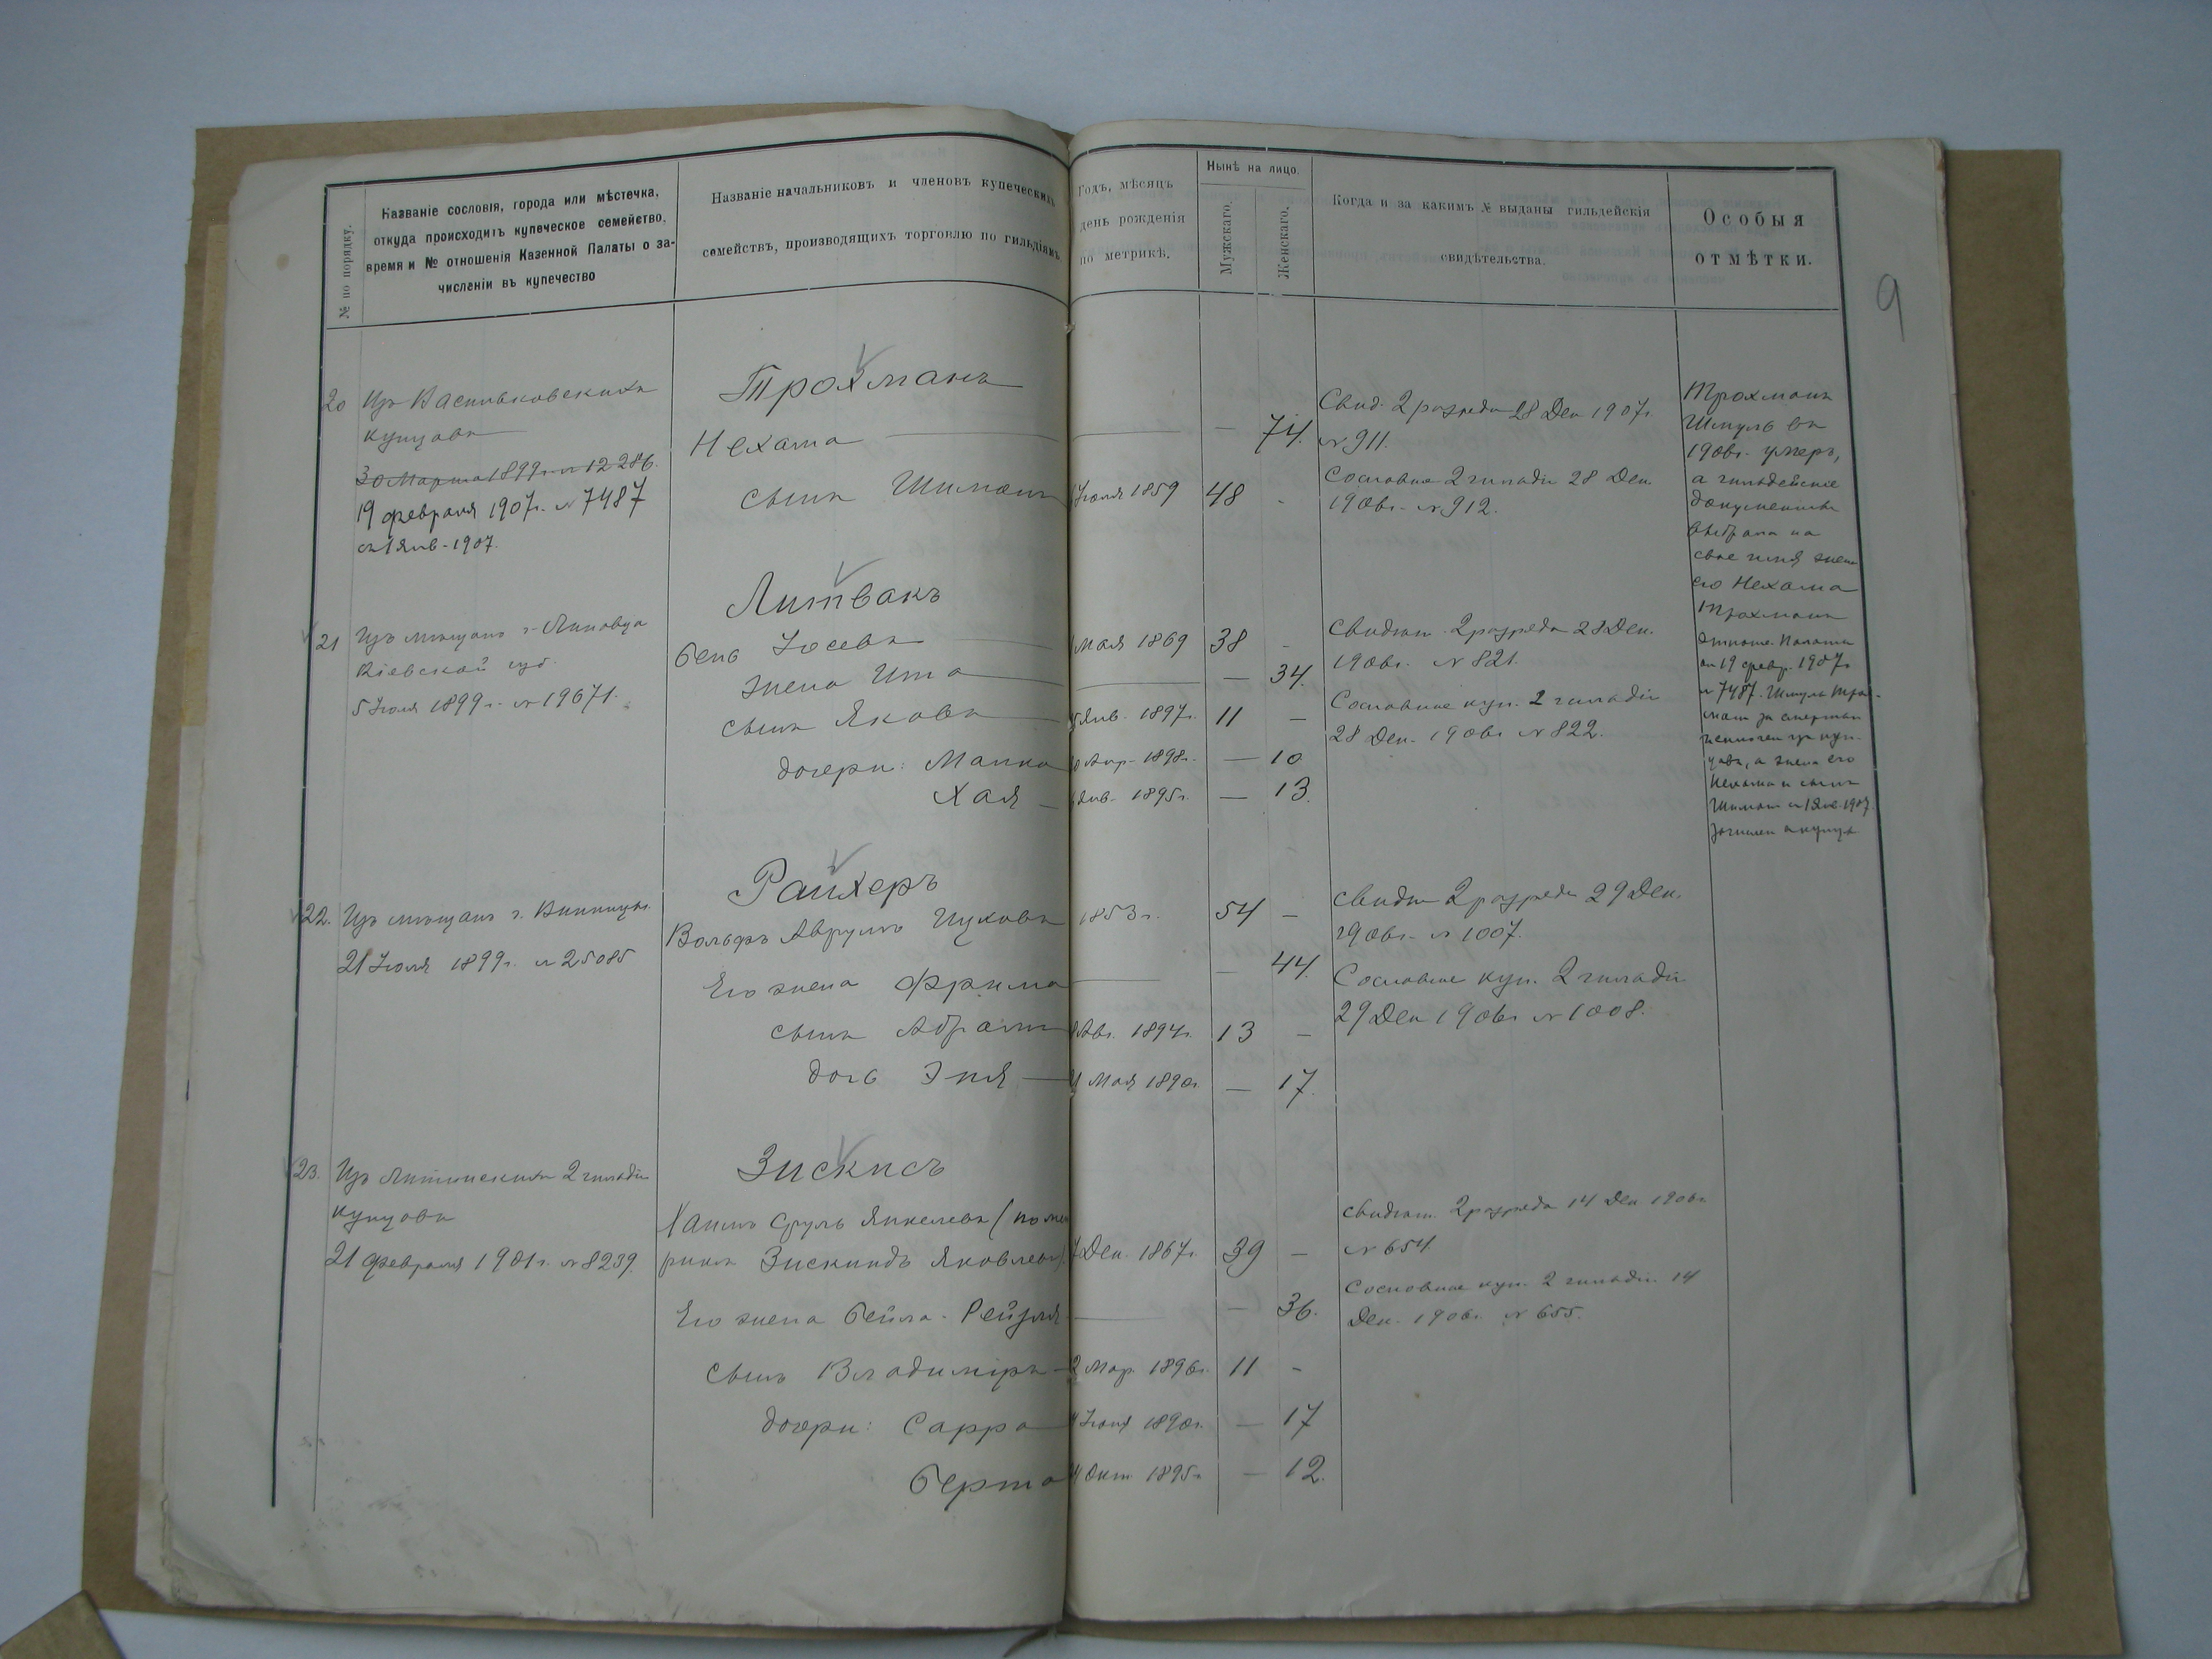 № по порядку.
Названіе сословія, города или мѣстечка,
откуда происходитъ купеческое семейство,
время и № отношенія Казенной Палаты о за-
численіи въ купечество
Названіе начальниковъ и членовъ купеческихъ
семействъ, производящихъ торговлю по гильдіямъ.
Годъ, мѣсяцъ
день рожденія
по метрикѣ.
Нынѣ на лицо.
Мужскаго.
Женскаго.
Когда и за какимъ № выданы гильдейскія
свидѣтельства.
Особыя
отмѣтки.
9
20 Изъ Васильковскихъ
купцовъ
30 Марта 1899 г. № 12286.
19 февраля 1907 г. № 7487
съ 1 Янв. 1907.
Трохманъ
Нехама — 74.
сынъ Шимонъ Юля 1859 48 -
Свид. 2 разряда 28 Дек 1907 г.
№ 911.
Сословное 2 гильдіи 28 Дек.
1906 г. № 912.
Трохманъ
Шмуль въ
1906 г. умеръ,
а гильдейскіе
документы
выбрала на
свое имя жена
его Нехама
Трохманъ
отноше. Палаты
от 19 февр. 1907 г.
№ 7487. Шмуль Трох-
ман за смертью
исключен из куп-
цовъ, а жена его
Нехама и сынъ
Шимон с 1 Янв. 1907
зачислен в купцы
21 Изъ мѣщанъ г. Липовца
Кіевской губ.
5 Юля 1899 г. № 19671.
Литвакъ
Бень Іосевъ Мая 1869 38 -
жена Ита — 34.
сынъ Яковъ Янв. 1897 г. 11 —
дочери: Манка Апр. 1898 г. — 10
Хая Янв. 1895 г. — 13.
Свидѣт. 2 разряда 28 Дек.
1906 г. № 821.
Сословное куп. 2 гильдіи
28 Дек. 1906 г. № 822.
22. Изъ мѣщанъ г. Винницы.
21 Юля 1899 г. № 25085
Райхеръ
Вольфъ Аврумъ Ицковъ 1853 г. 54 —
Его жена Фрима — 44.
сынъ Абрамъ Авг. 1894 г. 13 —
дочь Эня Мая 1890 г. — 17.
Свидѣт 2 разряда 29 Дек.
1906 г. № 1007.
Сословное куп. 2 гильдіи
29 Дек 1906 г. № 1008.
23. Изъ Литинскихъ 2 гильдіи
купцовъ
21 февраля 1901 г. № 8239.
Зискисъ
Хаимъ Сруль Янкелевъ (по мет
рикѣ Зискиндъ Яковлевъ) Дек. 1867 г. 39 —
Его жена Бейла-Рейзля — 36.
сынъ Владиміръ Мар. 1896 г. 11 -
дочери: Сарра 1890 г. — 17
Берта Окт. 1895 г. — 12.
Свидѣт. 2 разряда 14 Дек. 1906 г.
№ 654.
Сословное куп. 2 гильдіи 14
Дек. 1906 г. № 655.